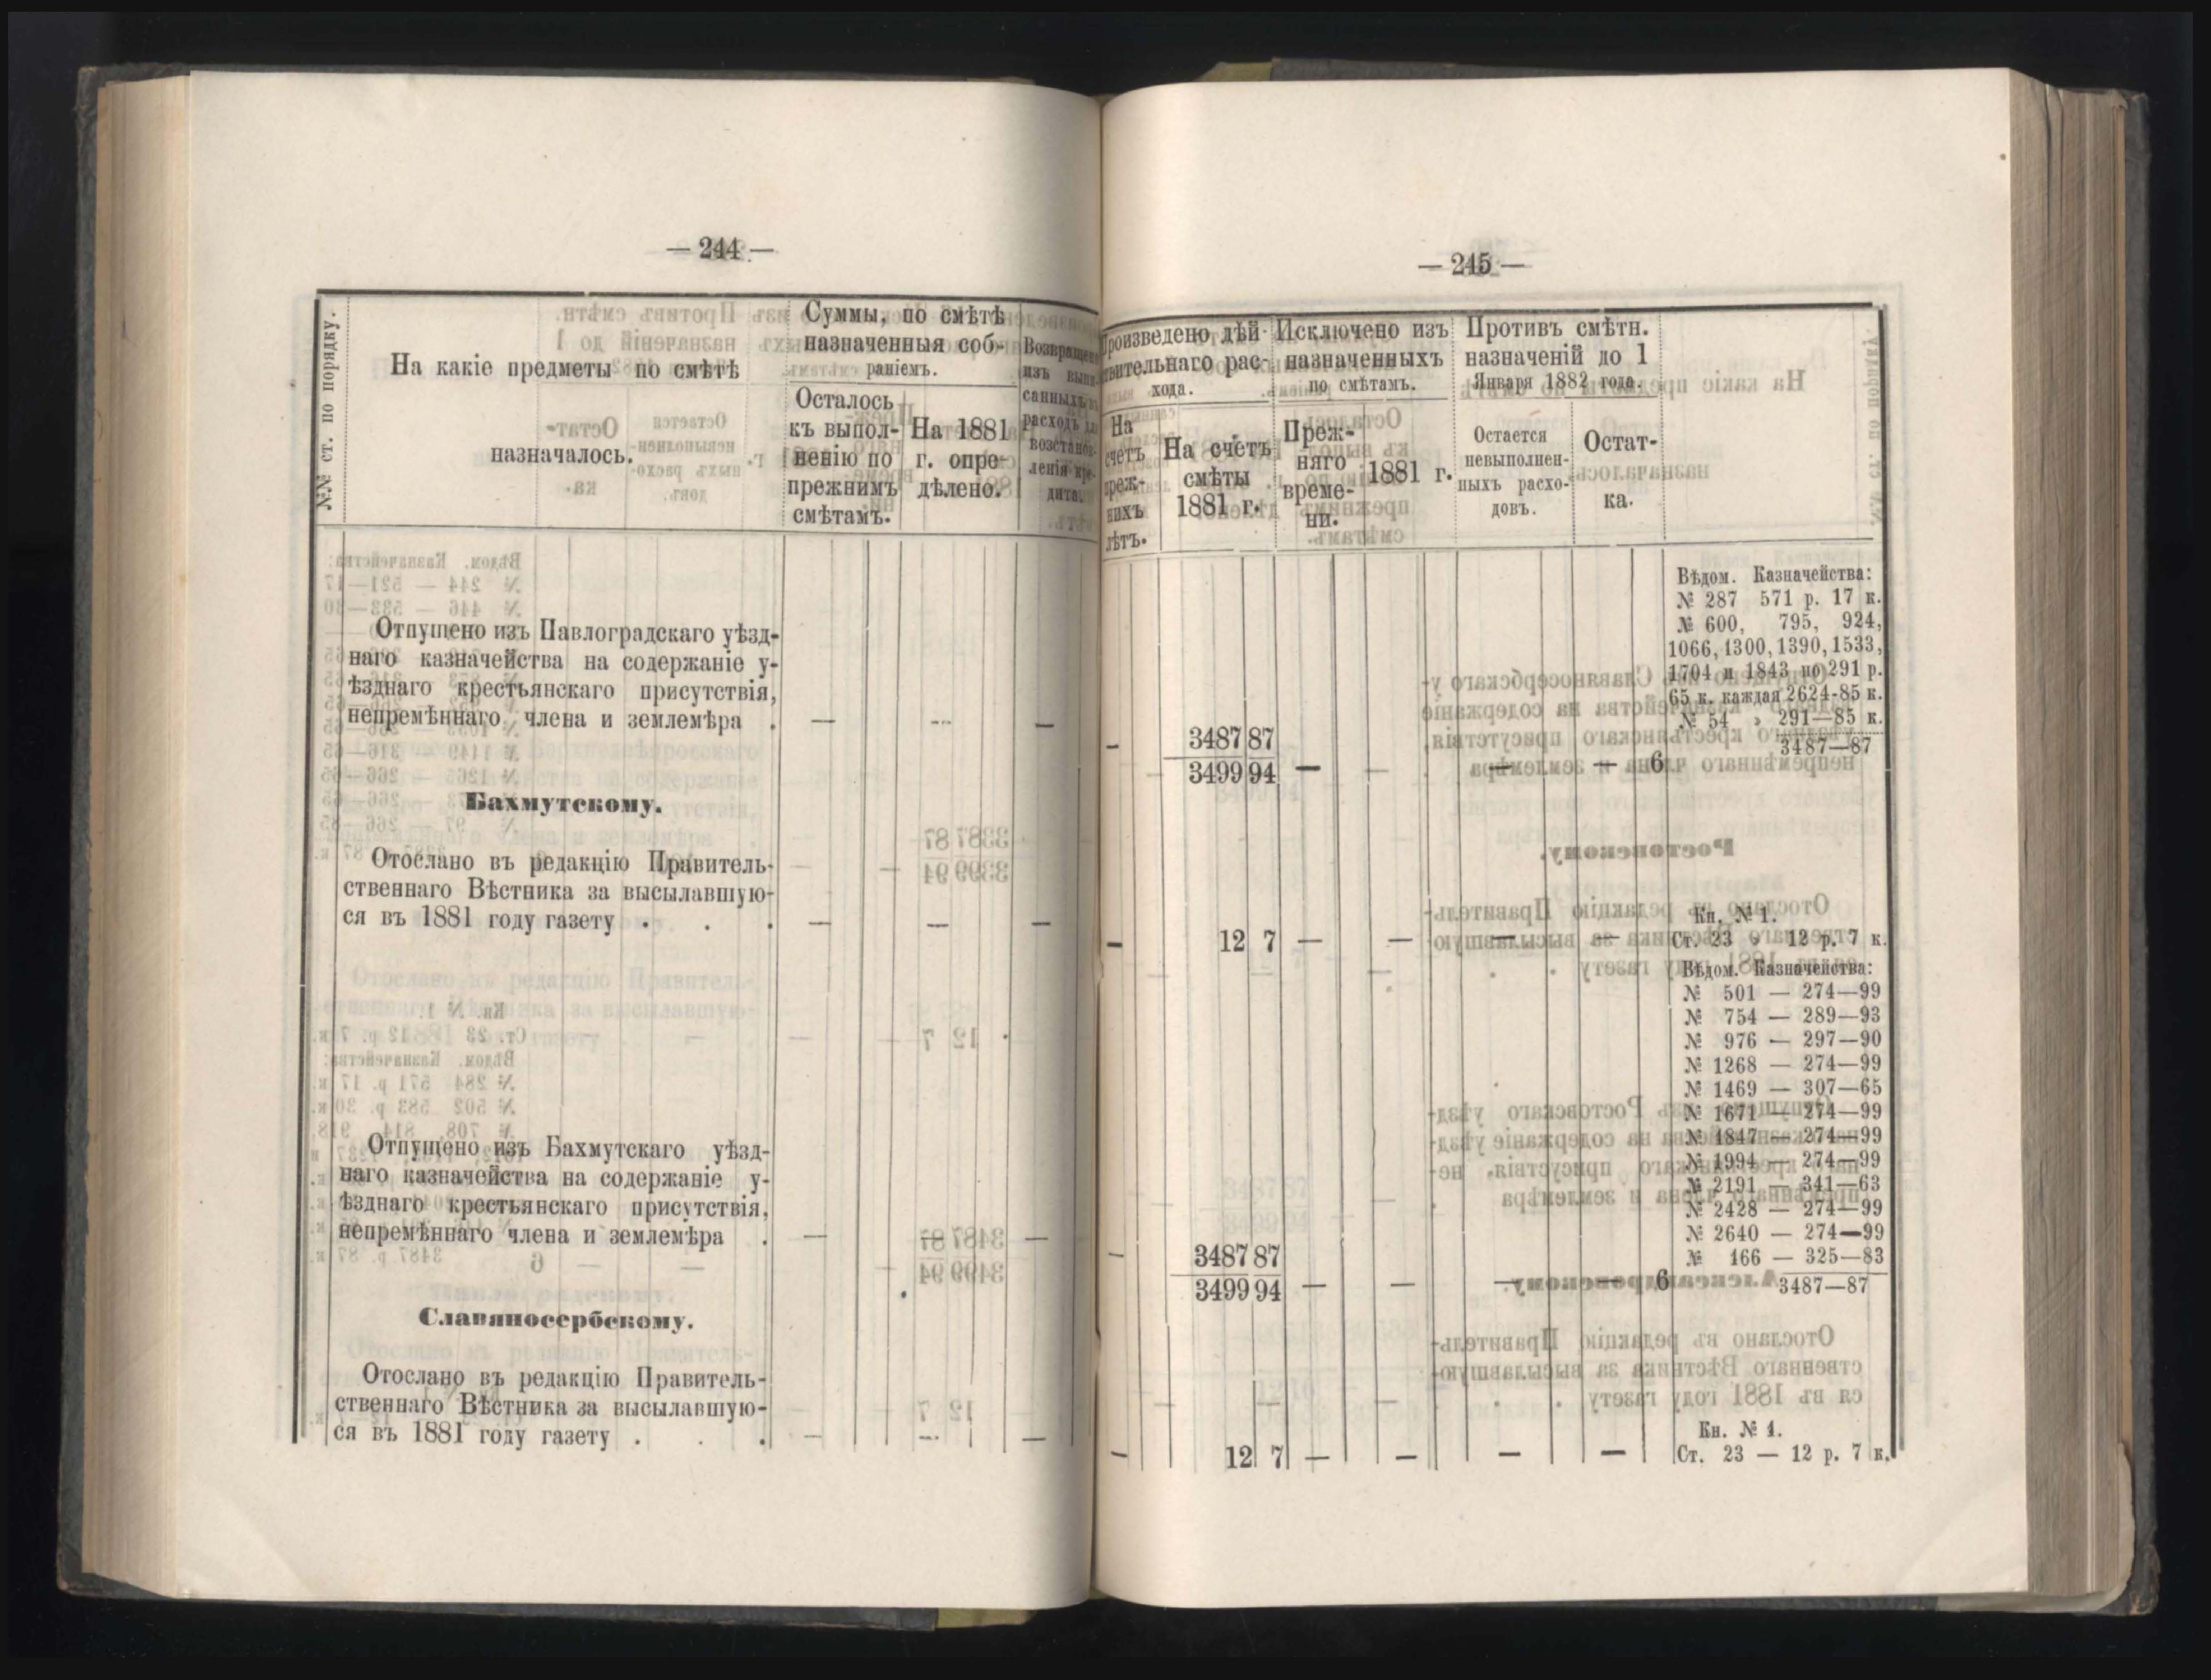 — 244 —
№№ ст. по порядку.
На какіе предметы по смѣтѣ
назначалось.
Суммы, по смѣтѣ
назначенныя соб-
раніемъ.
Осталось
къ выпол-
ненію по
прежнимъ
смѣтамъ.
На 1881
г. опре-
дѣлено.
Возвращено
изъ выпи-
санныхъ въ
расходъ для
возстанов-
ленія кре-
дита.
Отпущено изъ Павлоградскаго уѣзд-
наго казначейства на содержаніе у-
ѣзднаго крестьянскаго присутствія,
непремѣннаго члена и землемѣра . — — —
Бахмутскому.
Отослано въ редакцію Правитель-
ственнаго Вѣстника за высылавшую-
ся въ 1881 году газету . . . — — —
Отпущено изъ Бахмутскаго уѣзд-
наго казначейства на содержаніе у-
ѣзднаго крестьянскаго присутствія,
непремѣннаго члена и землемѣра . — — —
Славяносербскому.
Отослано въ редакцію Правитель-
ственнаго Вѣстника за высылавшую-
ся въ 1881 году газету . . . — — —
— 245 —
Произведено дѣй-
ствительнаго рас-
хода.
На
счетъ
преж-
нихъ
лѣтъ.
На счетъ
смѣты
1881 г.
Исключено изъ
назначенныхъ
по смѣтамъ.
Преж-
няго
време-
ни.
1881 г.
Противъ смѣтн.
назначеній до 1
Января 1882 года.
Остается
невыполнен-
ныхъ расхо-
довъ.
Остат-
ка.
Вѣдом. Казначейства:
№ 287 571 р. 17 к.
№ 600, 795, 924,
1066, 1300, 1390, 1533,
1704 и 1843 по 291 р.
65 к. каждая 2624-85 к.
№ 54 » 291—85 к.
— 3487 87
3487—87
3499 94 — — — — 6
Кн. № 1.
— 12 7 — — — — Ст. 23 » 12 р. 7 к.
Вѣдом. Казначейства:
№ 501 — 274—99
№ 754 — 289—93
№ 976 — 297—90
№ 1268 — 274—99
№ 1469 — 307—65
№ 1671 — 274—99
№ 1847 — 274—99
№ 1994 — 274—99
№ 2191 — 341—63
№ 2428 — 274—99
№ 2640 — 274—99
— 3487 87 № 166 — 325—83
3499 94 — — — — 6 3487—87
Кн. № 1.
— 12 7 — — — — Ст. 23 — 12 р. 7 к.